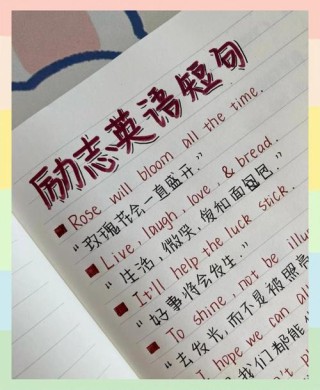 励志英语短句
Rose will bloom all the time.
"玫瑰花会一直盛开."
Live, laugh, love, & bread.
"生活,微笑,爱和面包."
It'll help the luck stick.
"好事将会发生."
To shine, not be illu
"去发光,而不是被照亮
I hope we can all
我们都能